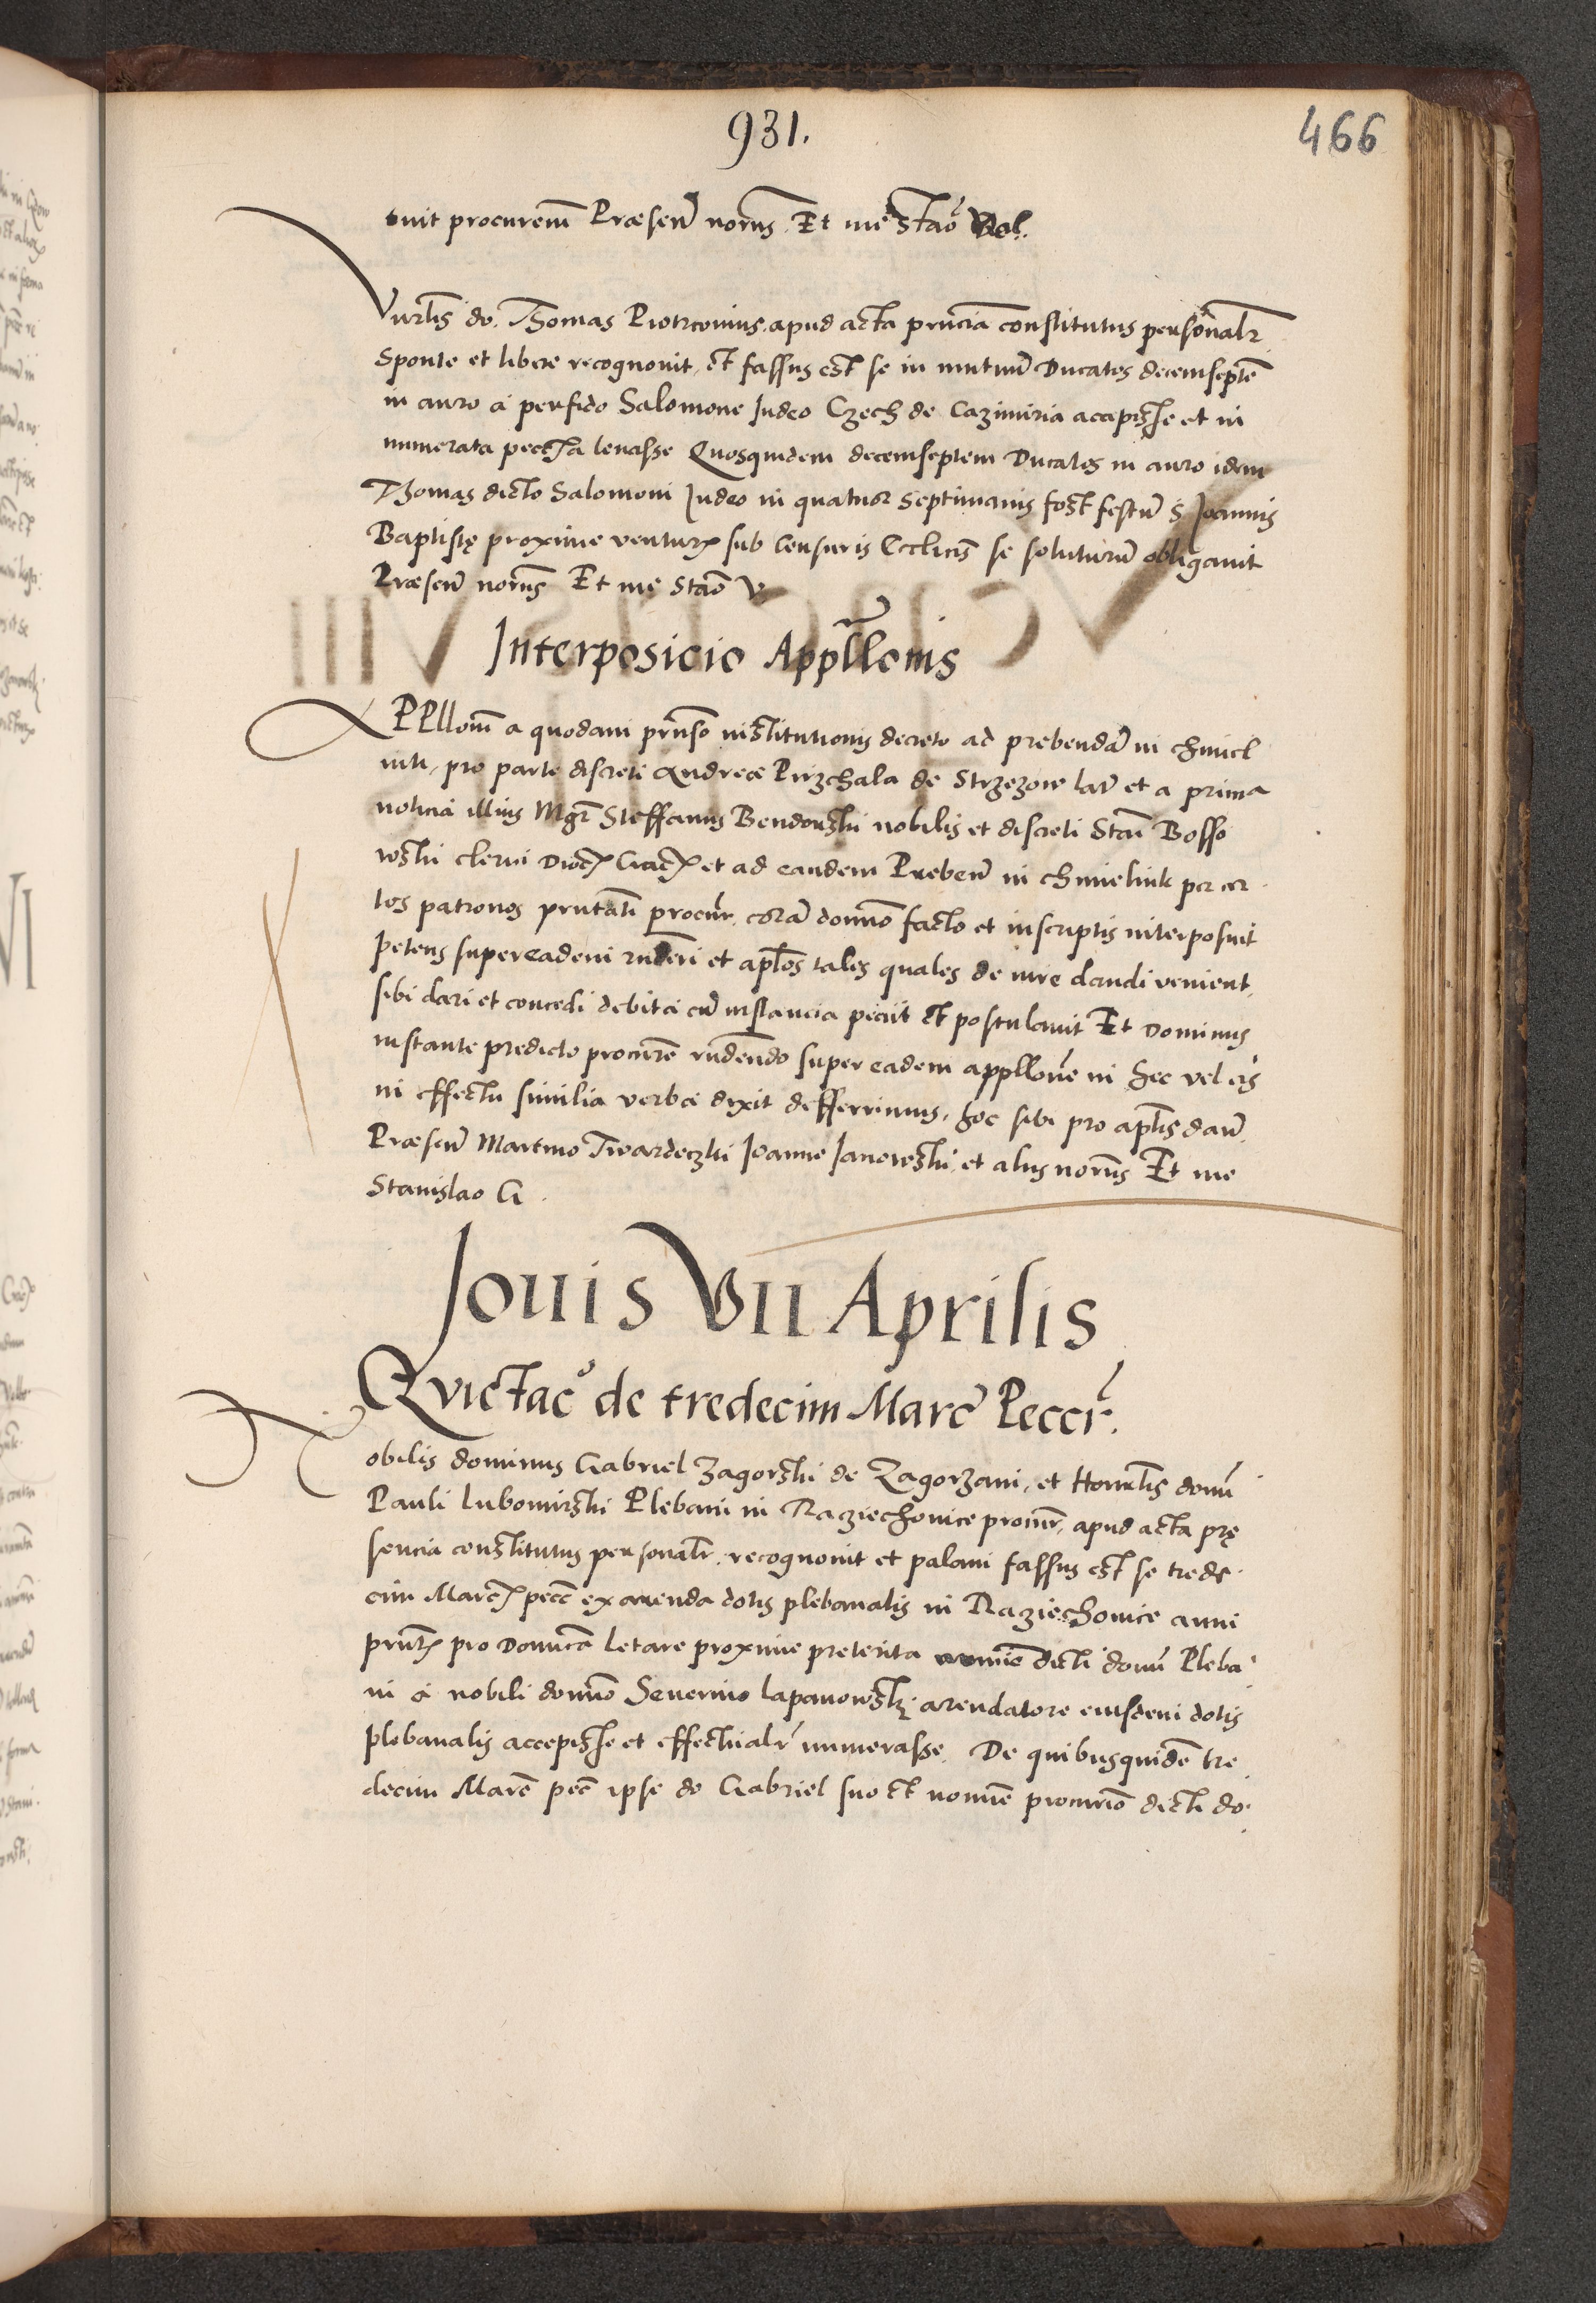 931.
466
tuit procurem Præsen norus. Et me Stao Vel.
Vnrlis do. Thomas Piotrconius apud acta prncia constitutus personalr
Sponte et libere recognouit, et fassus est se in mutuu Ducatos decemsepte
in auro a perfido Salomone Judeo Czech de Cazimiria accepisse et in
numerata pecca leuasse Quosquidem decemseptem Ducatos in auro idem
Thomas dicto Salomoni Judeo in quatuor Septimanis post festu S Joannis
Baptistę proxime ventur sub Censuris Ecclicis se soluturu obligauit
Præsen norus Et me Stao V
Interposicio Appllonis
APPllom a quodam prnso institutionis decreto ad prebenda in chmiel
nik, pro parte discreti Andreæ Pirzchala de Strzezow lat et a prima
noticia illius Mgr Steffanus Bendonski nobilis et discreti Stai Bosso
wski clerici Dioc Crac et ad eandem Preben in chmielnik per cer
tos patronos prntati procur. cora domino facto et inscriptis interposuit
petens supereadem rnderi et aplos tales quales de iure dandi venient
sibi dari et concedi debita cu instancia peciit et postulauit Et Dominus
instante predicto procure rndendo super eadem appllone in hec vel eis
in effectu similia verba dixit defferrimus, hoc sibi pro aplis dan
Præsen Martino Twardeczki Joanne Janowski, et aliis norus Et me
Stanislao G.
Jouis VII Aprilis
Qvictac de tredecim Marc Peccr.
Nobilis dominus Gabriel Zagorski de Zagorzani, et Honrlis domi
Pauli Lubomirski Plebani in Raziechouice procur, apud acta prę
sencia constitutus personalr. recognouit et palam fassus est se trede
cim Marc pecc ex arenda dotis plebanalis in Raziechouice anni
prnt pro Domica letare proxime preterita nomie dicti domi Pleba
ni a nobili domino Seuerino lapanowski arendatore eiusdem dotis
plebanalis accepisse et effectualr numerasse. De quibusquide tre
decim Marc pec ipse do Gabriel suo et nomie procurio dicti do.